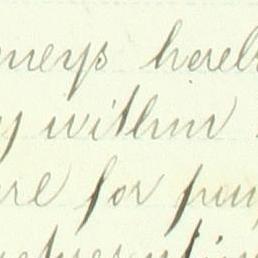 neys hereb
y within
re for pay